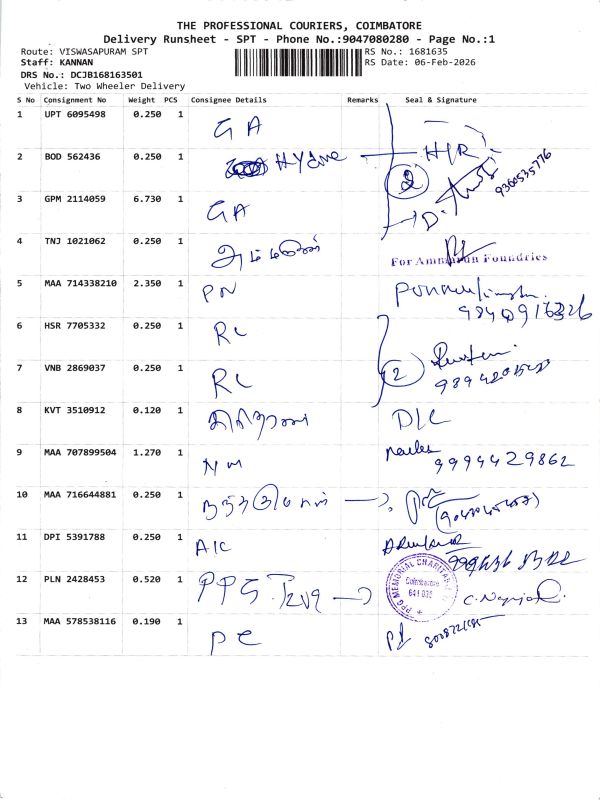 THE PROFESSIONAL COURIERS, COIMBATORE
Delivery Runsheet - SPT - Phone No.:9047080280 - Page No.:1
Route: VISWASAPURAM SPT
RS No.: 1681635
Staff: KANNAN
RS Date: 06-Feb-2026
DRS No.: DCJB168163501
Vehicle: Two Wheeler Delivery
S No Consignment No Weight PCS Consignee Details Remarks Seal & Signature
1 UPT 6095498 0.250 1 GA
2 BOD 562436 0.250 1 H/R
2
9360535776
3 GPM 2114059 6.730 1 GA
4 TNJ 1021062 0.250 1
For Ammarun Foundries
5 MAA 714338210 2.350 1 PN
6 HSR 7705332 0.250 1 RL
2
7 VNB 2869037 0.250 1 RL
8 KVT 3510912 0.120 1 D/L
9 MAA 707899504 1.270 1 NM
9994429862
10 MAA 716644881 0.250 1
11 DPI 5391788 0.250 1 A/C
12 PLN 2428453 0.520 1 PPG
PPG MEMORIAL CHARITABLE
Coimbatore
641 035
13 MAA 578538116 0.190 1 PC